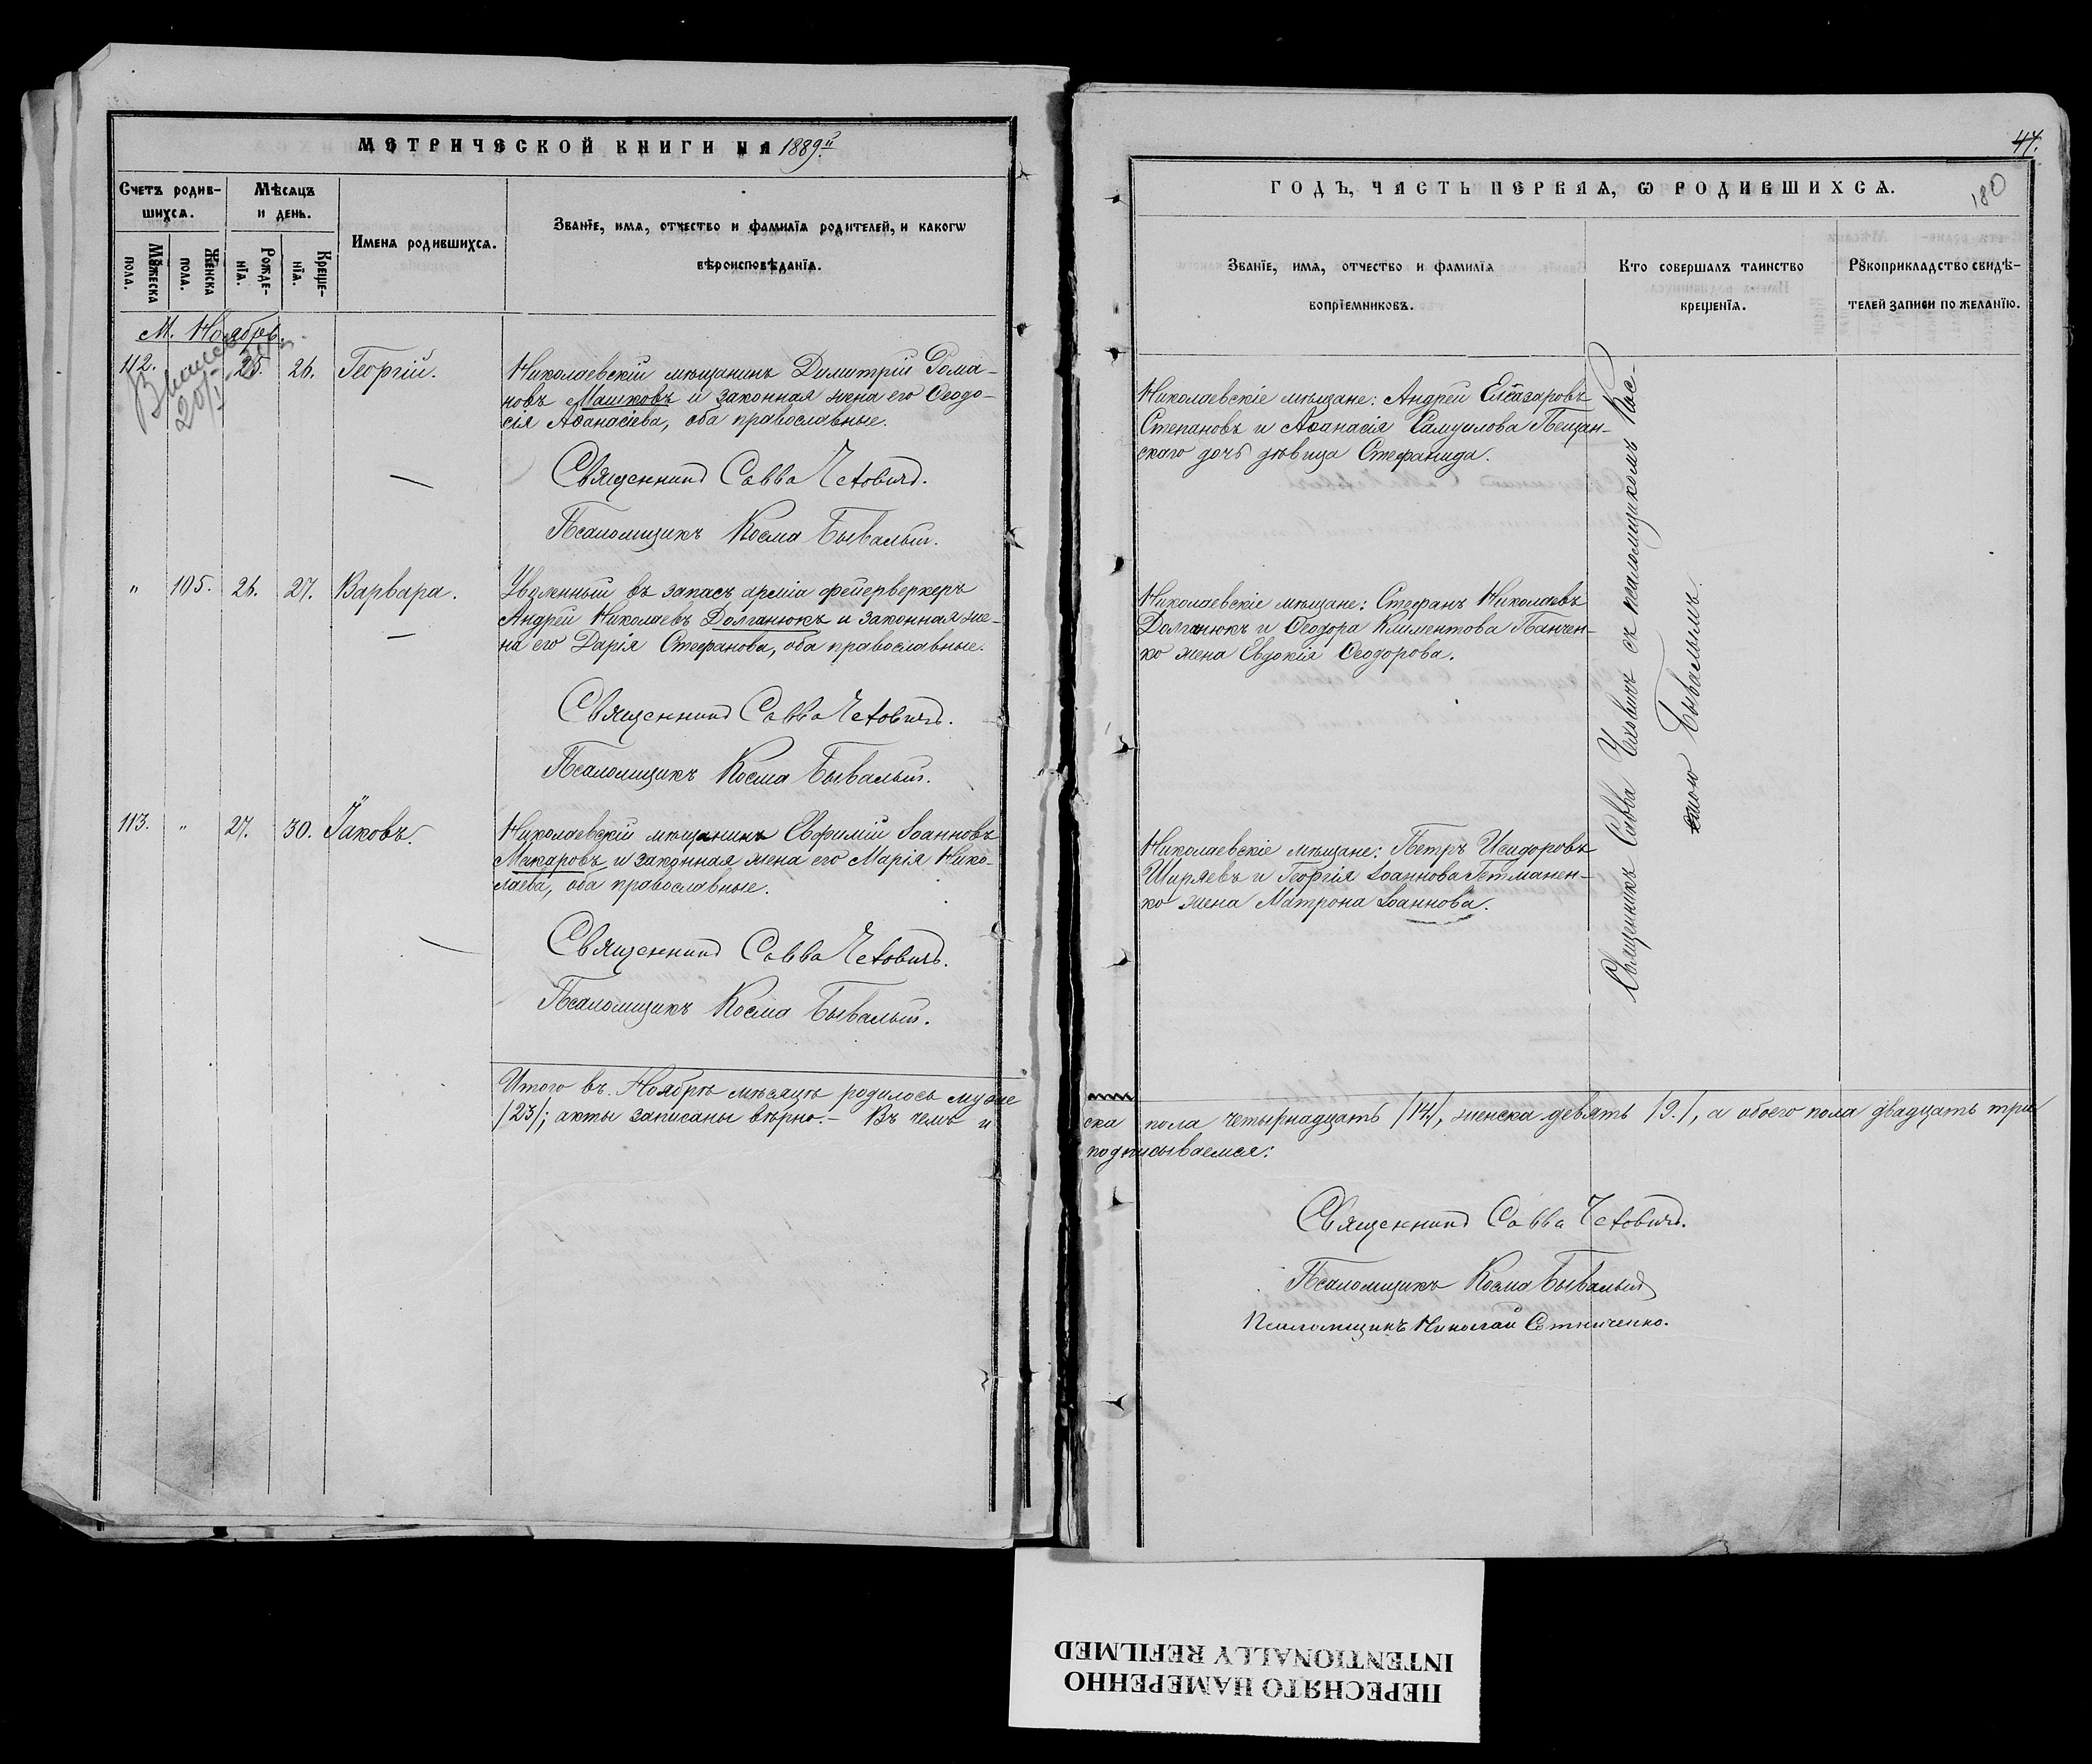 МЕТРИЧЕСКОЙ КНИГИ НА 1889й
Счетъ родив-
шихсѧ.
Мѣсѧцъ
и день.
Имена родившихсѧ.
Званїе, имѧ, отчество и фамилїѧ родителей, и какогѡ
вѣроисповѣданїѧ.
Мꙋжеска
пола.
Женска
пола.
Рожде-
нїѧ.
Креще-
нїѧ.
М. Ноябрь.
112. 25. 26. Георгій.
Николаевскій мѣщанинъ Димитрій Рома-
новъ Машковъ и законная жена его Ѳеодо-
сія Аѳанасіева, оба православные.
Священникъ Савва Чехович.
Псаломщикъ Косма Бывалый.
" 105. 26. 27. Варвара.
Уволенный въ запасъ арміи фейерверкеръ
Андрей Николаевъ Долганюкъ и законная же-
на его Дарія Стефанова, оба православные.
Священникъ Савва Чехович.
Псаломщикъ Косма Бывалый.
113. " 27. 30. Іаковъ.
Николаевскій мѣщанинъ Евфимій Іоанновъ
Макаровъ и законная жена его Марія Нико-
лаева, оба православные.
Священникъ Савва Чехович.
Псаломщикъ Косма Бывалый.
Итого въ Ноябрѣ мѣсяцѣ родилось муже
/23/; акты записаны вѣрно. – Въ чемъ и
47.
180
ГОДЪ, ЧАСТЬ ПЕРВАѦ, Ѡ РОДИВШИХСѦ.
Званїе, имѧ, отчество и фамилїѧ
воспрїемниковъ.
Кто совершалъ таинство
крещенїѧ.
Рꙋкоприкладство свидѣ-
телей записи по желанїю.
Николаевскіе мѣщане: Андрей Елеазаровъ
Степановъ и Аѳанасія Самуилова Пещан-
скаго дочь дѣвица Стефанида.
Николаевскіе мѣщане: Стефанъ Николаевъ
Долганюкъ и Ѳеодора Климентова Панчен-
ко жена Евдокія Ѳеодорова.
Николаевскіе мѣщане: Петръ Исидоровъ
Ширяевъ и Георгія Іоаннова Гетманен-
ко жена Матрона Іоаннова.
Священникъ Савва Чеховичъ съ псаломщикомъ Кос-
мою Бывалымъ.
ска пола четырнадцать /14/, женска девять /9./, а обоего пола двадцать три
подписываемся:
Священникъ Савва Чехович.
Псаломщикъ Косма Бывалый
Псаломщикъ Николай Сотниченко.
ПЕРЕСНЯТО НАМЕРЕННО
INTENTIONALLY REFILMED